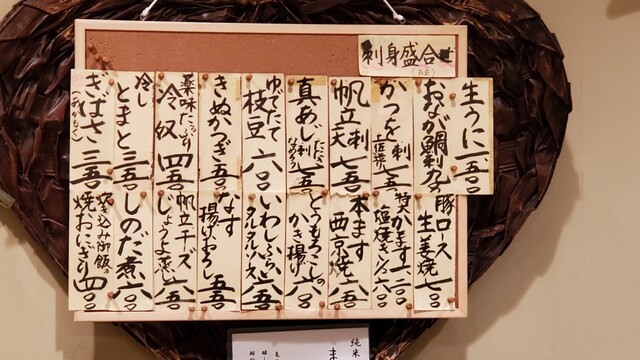 刺身盛合せ
生うに 一、五〇
おなが鯛刺 九〇
かつを刺
真あじ刺
帆立刺 七五〇
ゆでたて
枝豆 六〇〇
きぬかつぎ 五五〇
薬味たっぷり
冷奴 四五〇
冷し
とまと 三五〇
ぎばさ 三五〇
豚ロース
生姜焼 七〇〇
特大かます 一二〇〇
塩焼
六〇〇
本ます
西京焼 六五〇
とうもろこしの
かき揚げ 六〇〇
いわしふらい
タルタルソース 六五〇
なす
揚げおろし 五五〇
帆立チーズ
しょうよ蒸し 六五〇
しのだ煮 六〇〇
炊き込み御飯の
焼おにぎり 四〇〇
純米